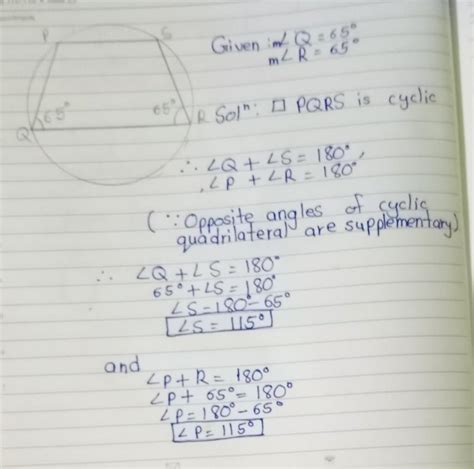 P S
Given : m∠Q = 65°
m∠R = 65°
65° 65°
Q R
Solⁿ : □ PQRS is cyclic
∴ ∠Q + ∠S = 180°,
, ∠P + ∠R = 180°
(∵ Opposite angles of cyclic
quadrilateral are supplementary)
∴ ∠Q + ∠S = 180°
65° + ∠S = 180°
∠S = 180° - 65°
∠S = 115°
and
∠P + R = 180°
∠P + 65° = 180°
∠P = 180° - 65°
∠P = 115°